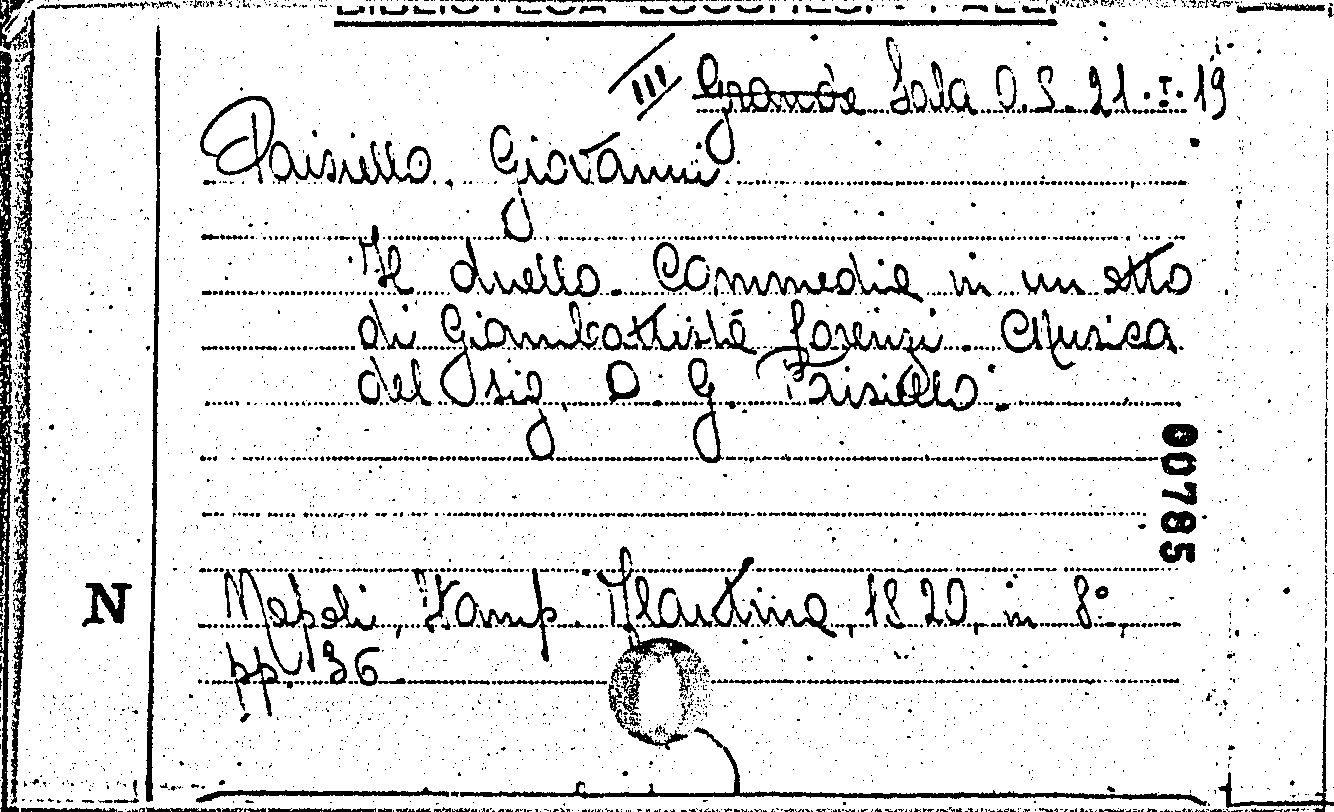 BIBLIOTECA LUCCHESI-PALLI
III Grande Sala O.S. 21.I.19
Paisiello, Giovanni
Il duello. Commedia in un atto
di Giambattista Lorenzi. Musica
del sig. D. G. Paisiello.
00785
N
Napoli, Stamp. Flautina, 1820, in 8°,
pp. 36